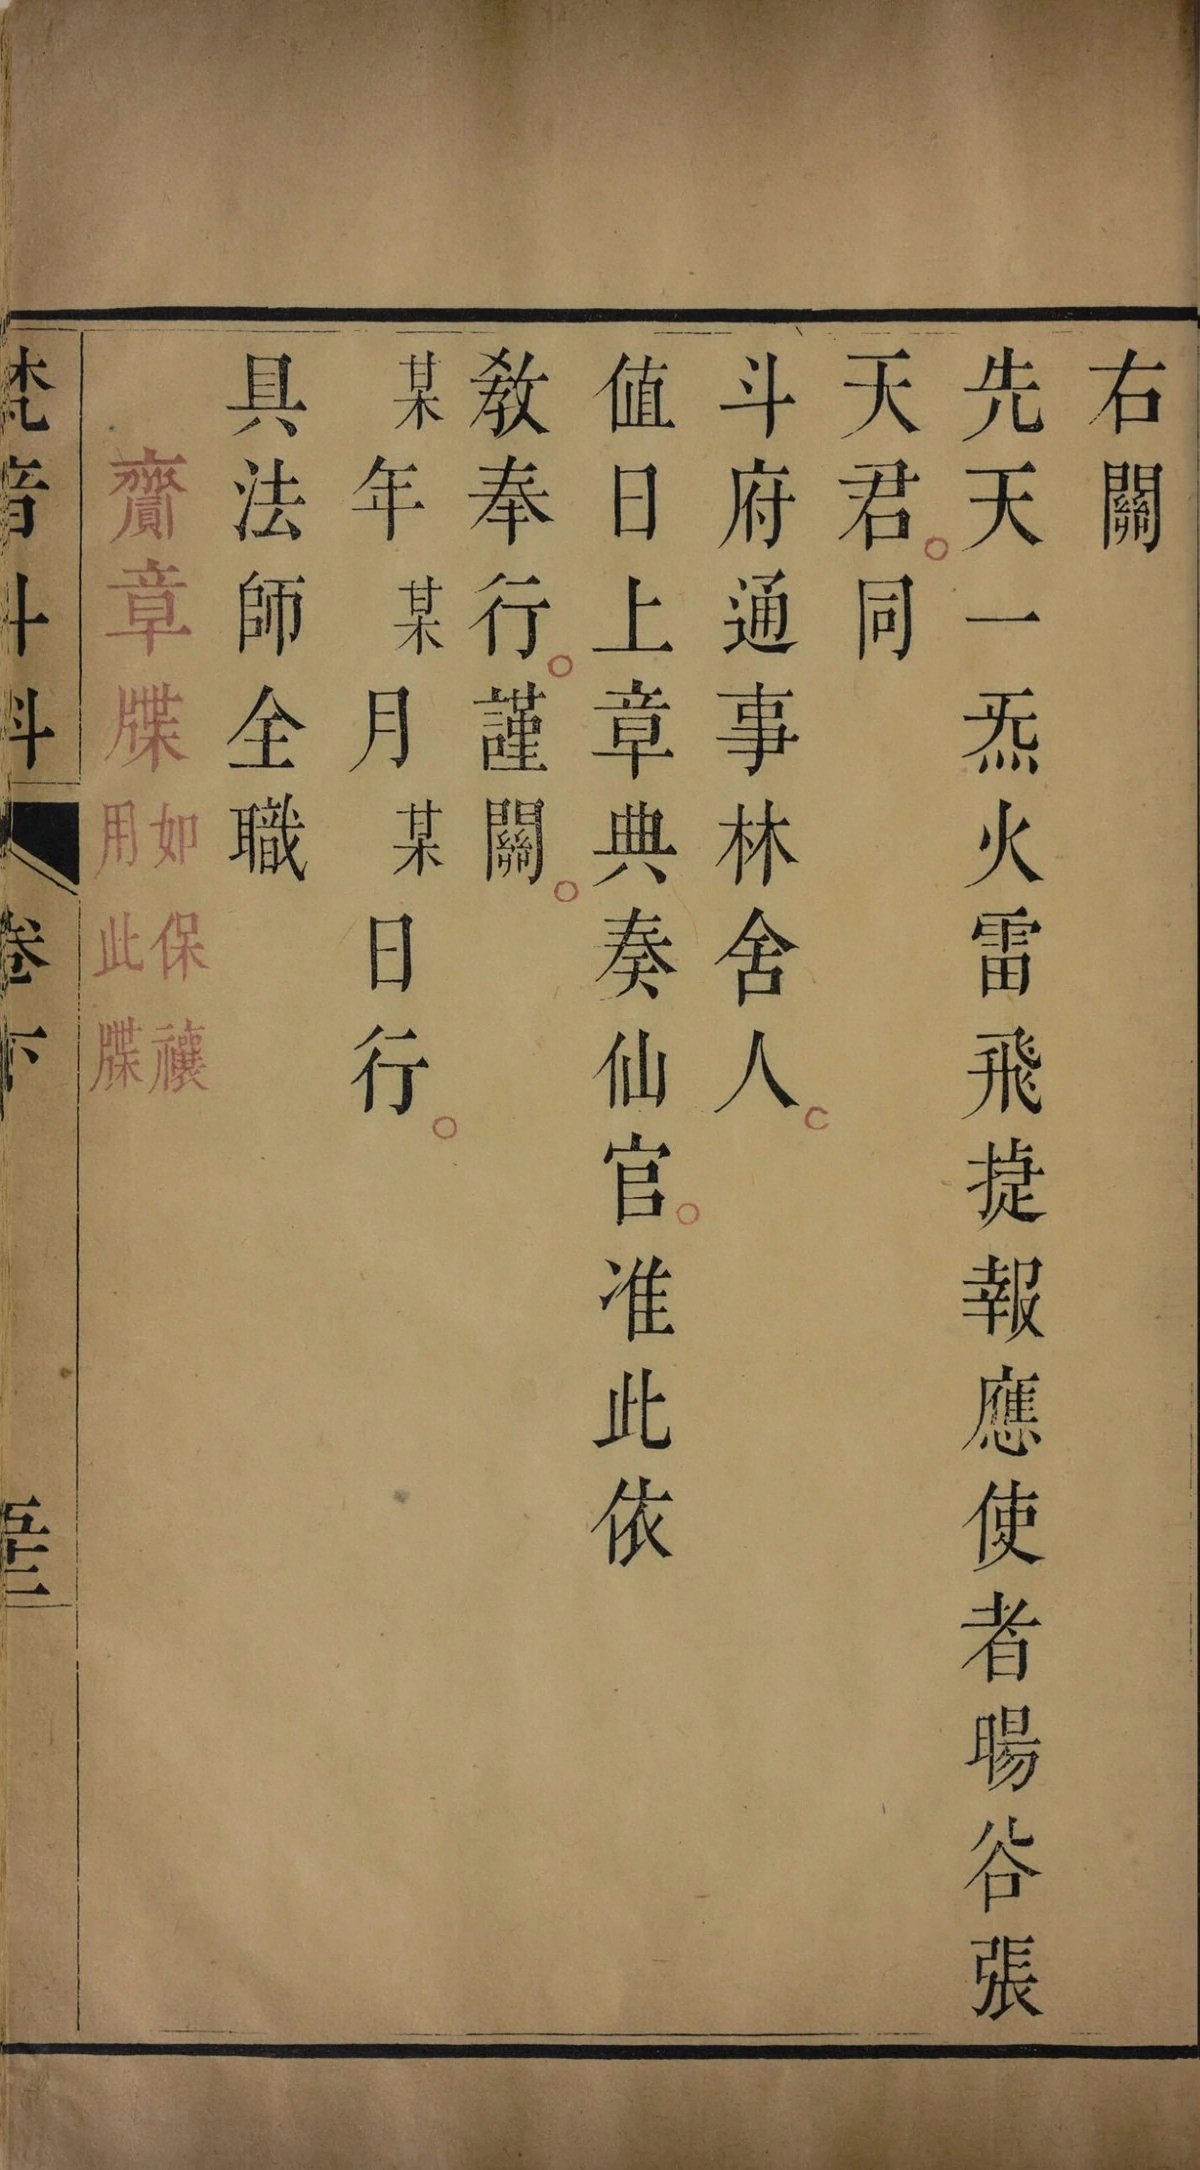 右關
先天一炁火雷飛捷報應使者暘谷張
天君。同
斗府通事林舍人。
值日上章典奏仙官。准此依
敎奉行。謹關。
某年某月某日行。
具法師全職
齎章牒如保禳用此牒
梵音斗科
卷下
五十二